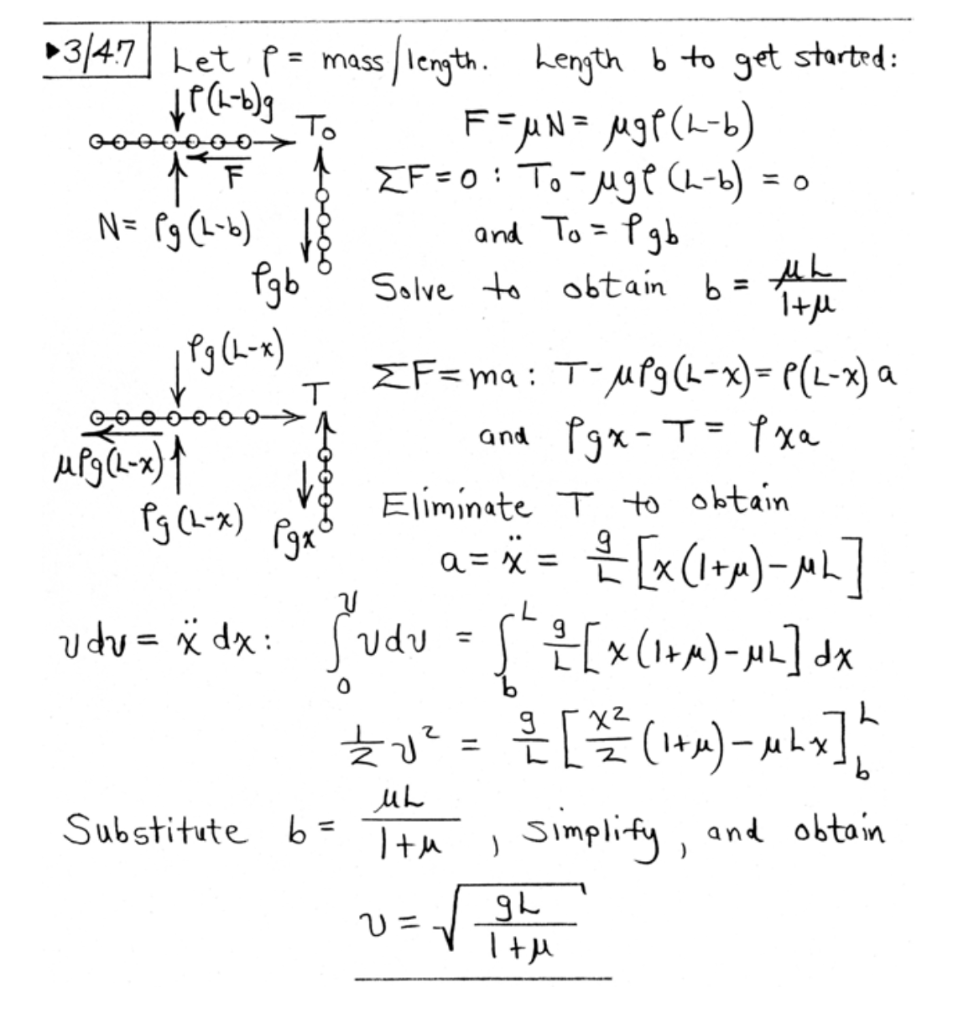 ▸3/47 Let ρ = mass/length. Length b to get started:
ρ(L-b)g
T₀
F = μN = μgρ(L-b)
F
ΣF = 0 : T₀ - μgρ(L-b) = 0
N = ρg(L-b)
and T₀ = ρgb
ρgb
Solve to obtain b = μL/(1+μ)
ρg(L-x)
T
ΣF = ma : T - μρg(L-x) = ρ(L-x)a
μρg(L-x)
and ρgx - T = ρxa
ρg(L-x)
ρgx
Eliminate T to obtain
a = ẍ = g/L [x(1+μ) - μL]
vdv = ẍ dx : ∫₀ᵛ vdv = ∫_b^L g/L [x(1+μ) - μL] dx
1/2 v² = g/L [x²/2 (1+μ) - μLx]_b^L
Substitute b = μL/(1+μ) , simplify, and obtain
v = √(gL/(1+μ))